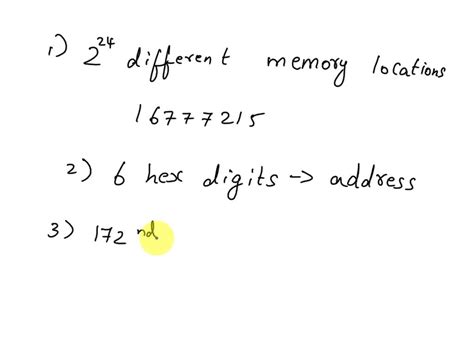 1) 2^24 different memory locations
16777215
2) 6 hex digits → address
3) 172 nd